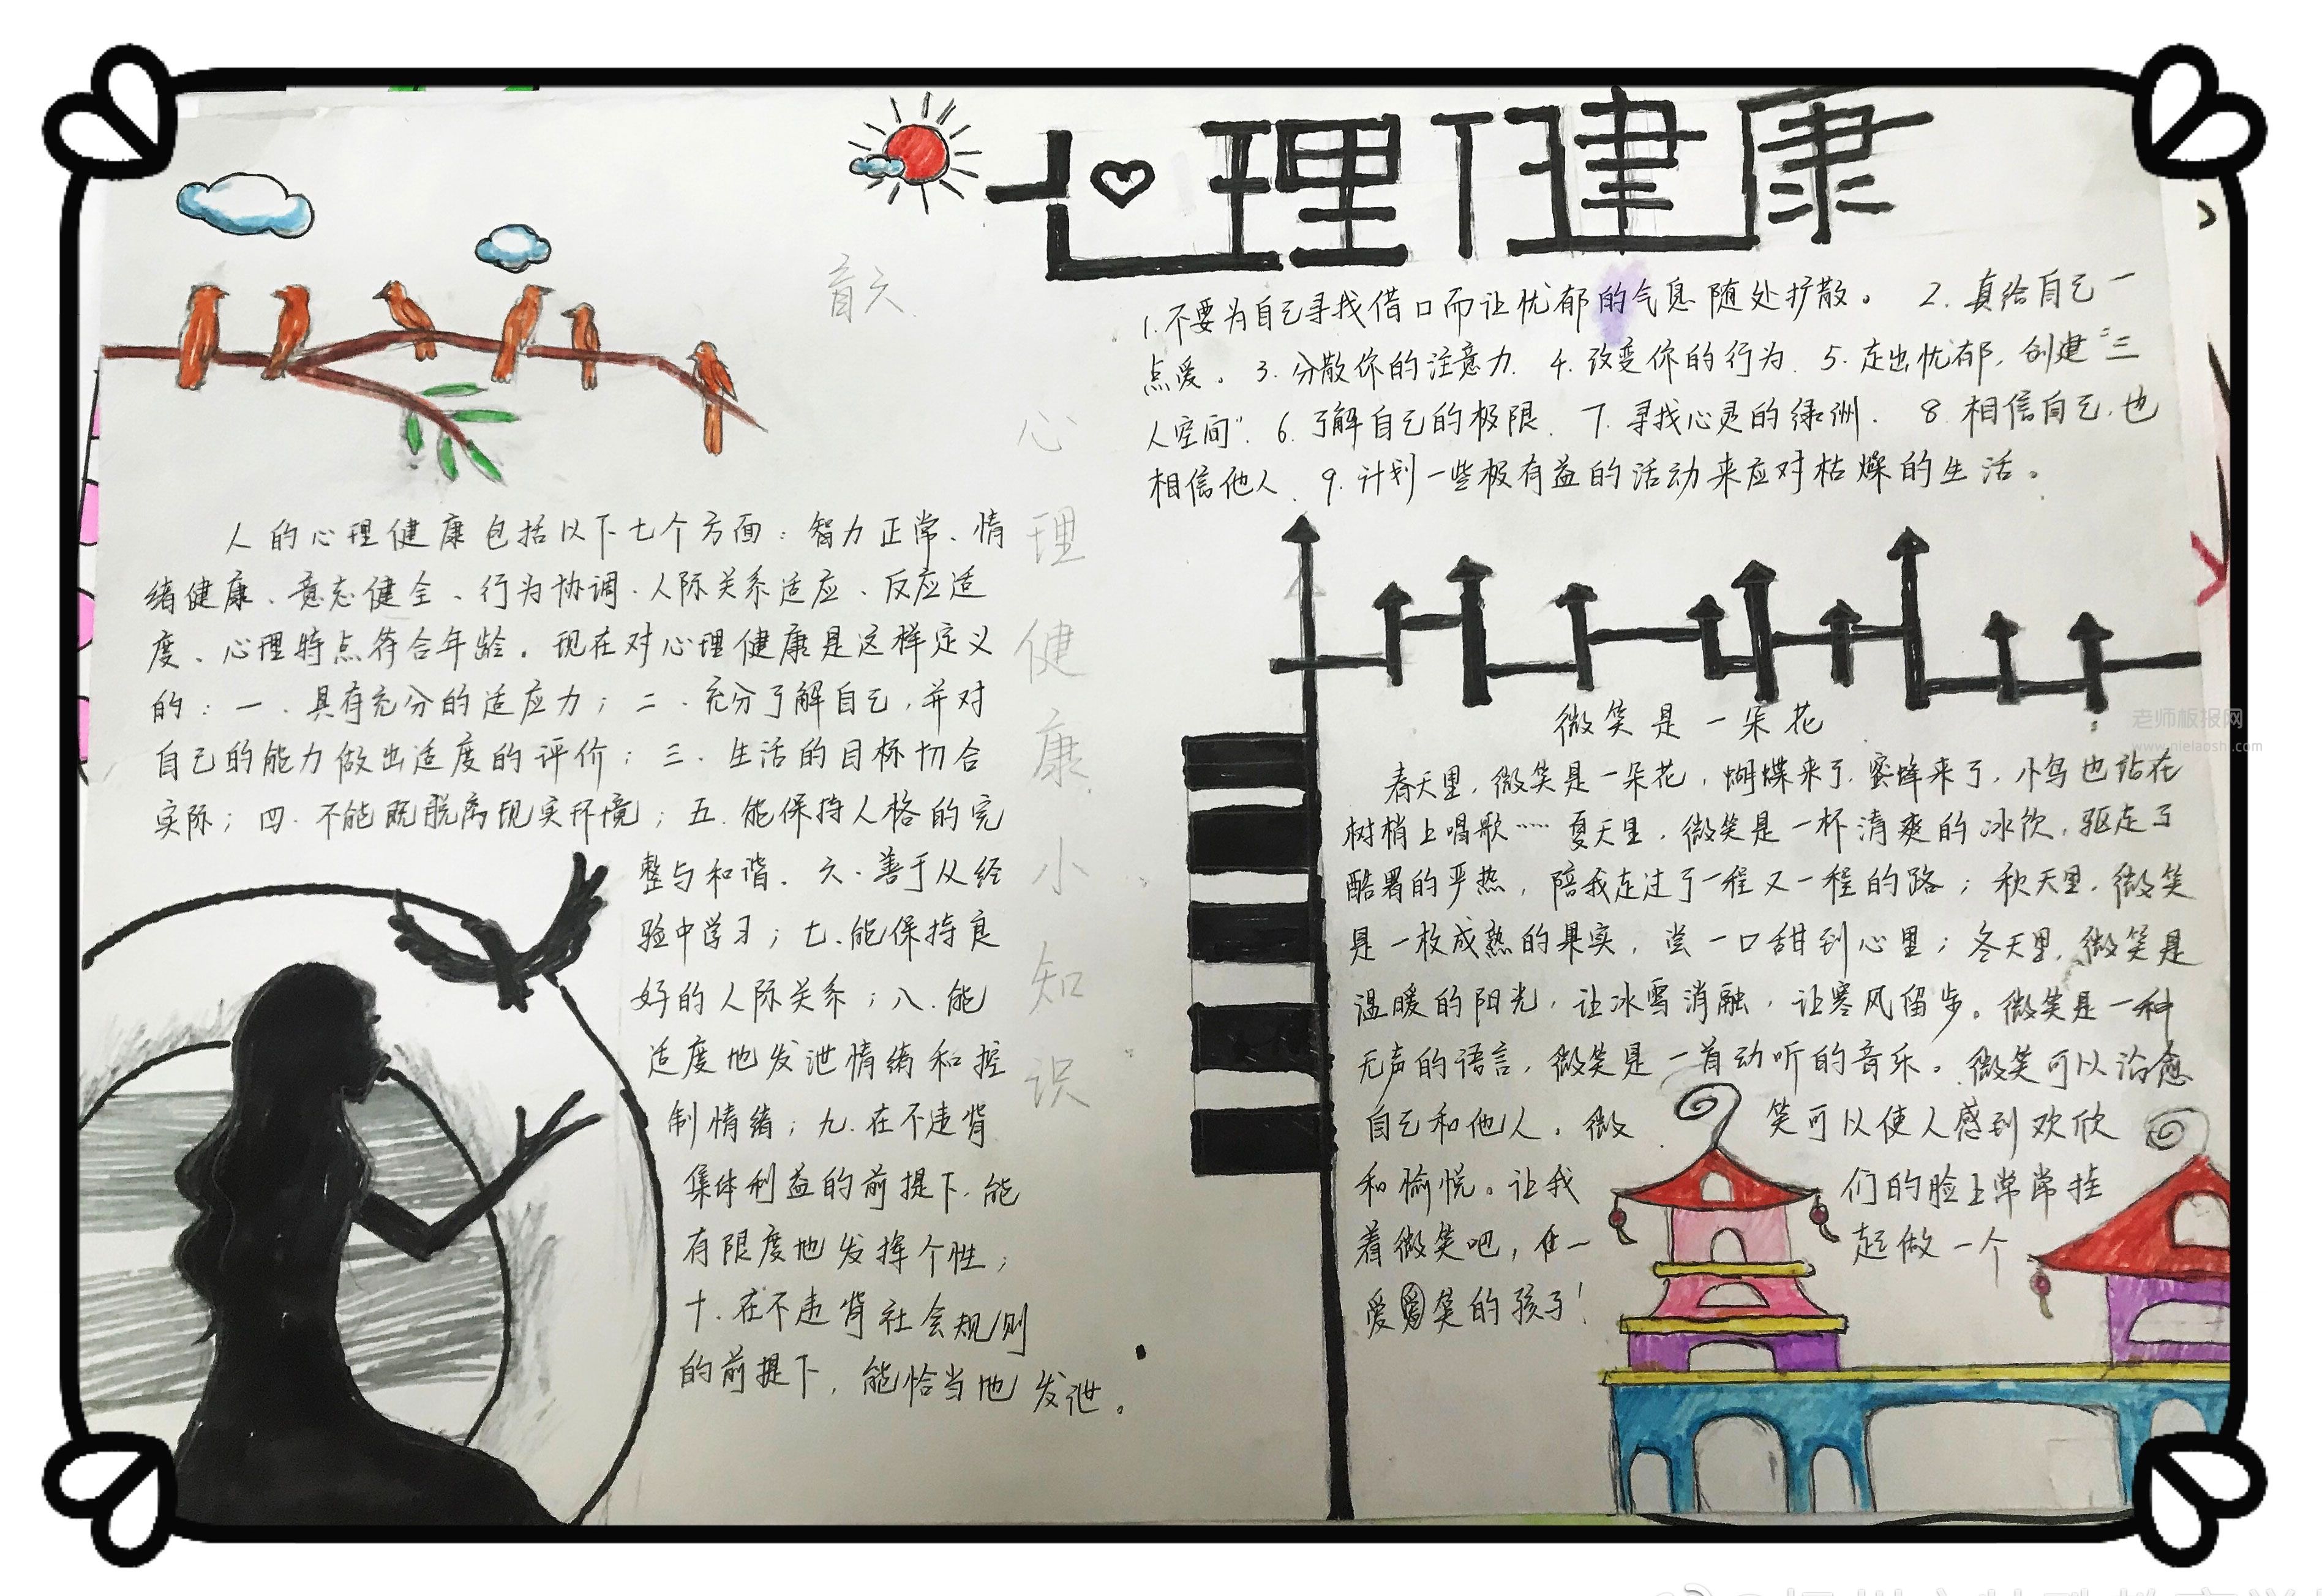 心理健康
1.不要为自己寻找借口而让忧郁的气息随处扩散。 2.真给自己一
点爱。3.分散你的注意力.4.改变你的行为.5.走出忧郁,创建“三
人空间”.6.了解自己的极限.7.寻找心灵的绿洲.8.相信自己,也
相信他人.9.计划一些极有益的活动来应对枯燥的生活。
心理健康小知识
人的心理健康包括以下七个方面:智力正常、情
绪健康、意志健全、行为协调、人际关系适应、反应适
度、心理特点符合年龄。现在对心理健康是这样定义
的:一、具有充分的适应力;二、充分了解自己,并对
自己的能力做出适度的评价;三、生活的目标切合
实际;四.不能既脱离现实环境;五.能保持人格的完
整与和谐.六、善于从经
验中学习;七、能保持良
好的人际关系;八.能
适度地发泄情绪和控
制情绪;九.在不违背
集体利益的前提下,能
有限度地发挥个性;
十.在不违背社会规则
的前提下,能恰当地发泄。
微笑是一朵花
春天里,微笑是一朵花,蝴蝶来了,蜜蜂来了,小鸟也站在
树梢上唱歌……夏天里,微笑是一杯清爽的冰饮,驱走了
酷暑的严热,陪我走过了一程又一程的路;秋天里,微笑
是一枚成熟的果实,尝一口甜到心里;冬天里,微笑是
温暖的阳光,让冰雪消融,让寒风留步。微笑是一种
无声的语言,微笑是一首动听的音乐。微笑可以治愈
自己和他人。微笑可以使人感到欢欣
和愉悦。让我们的脸上常常挂
着微笑吧,一起做一个
爱笑的孩子!
老师板报网